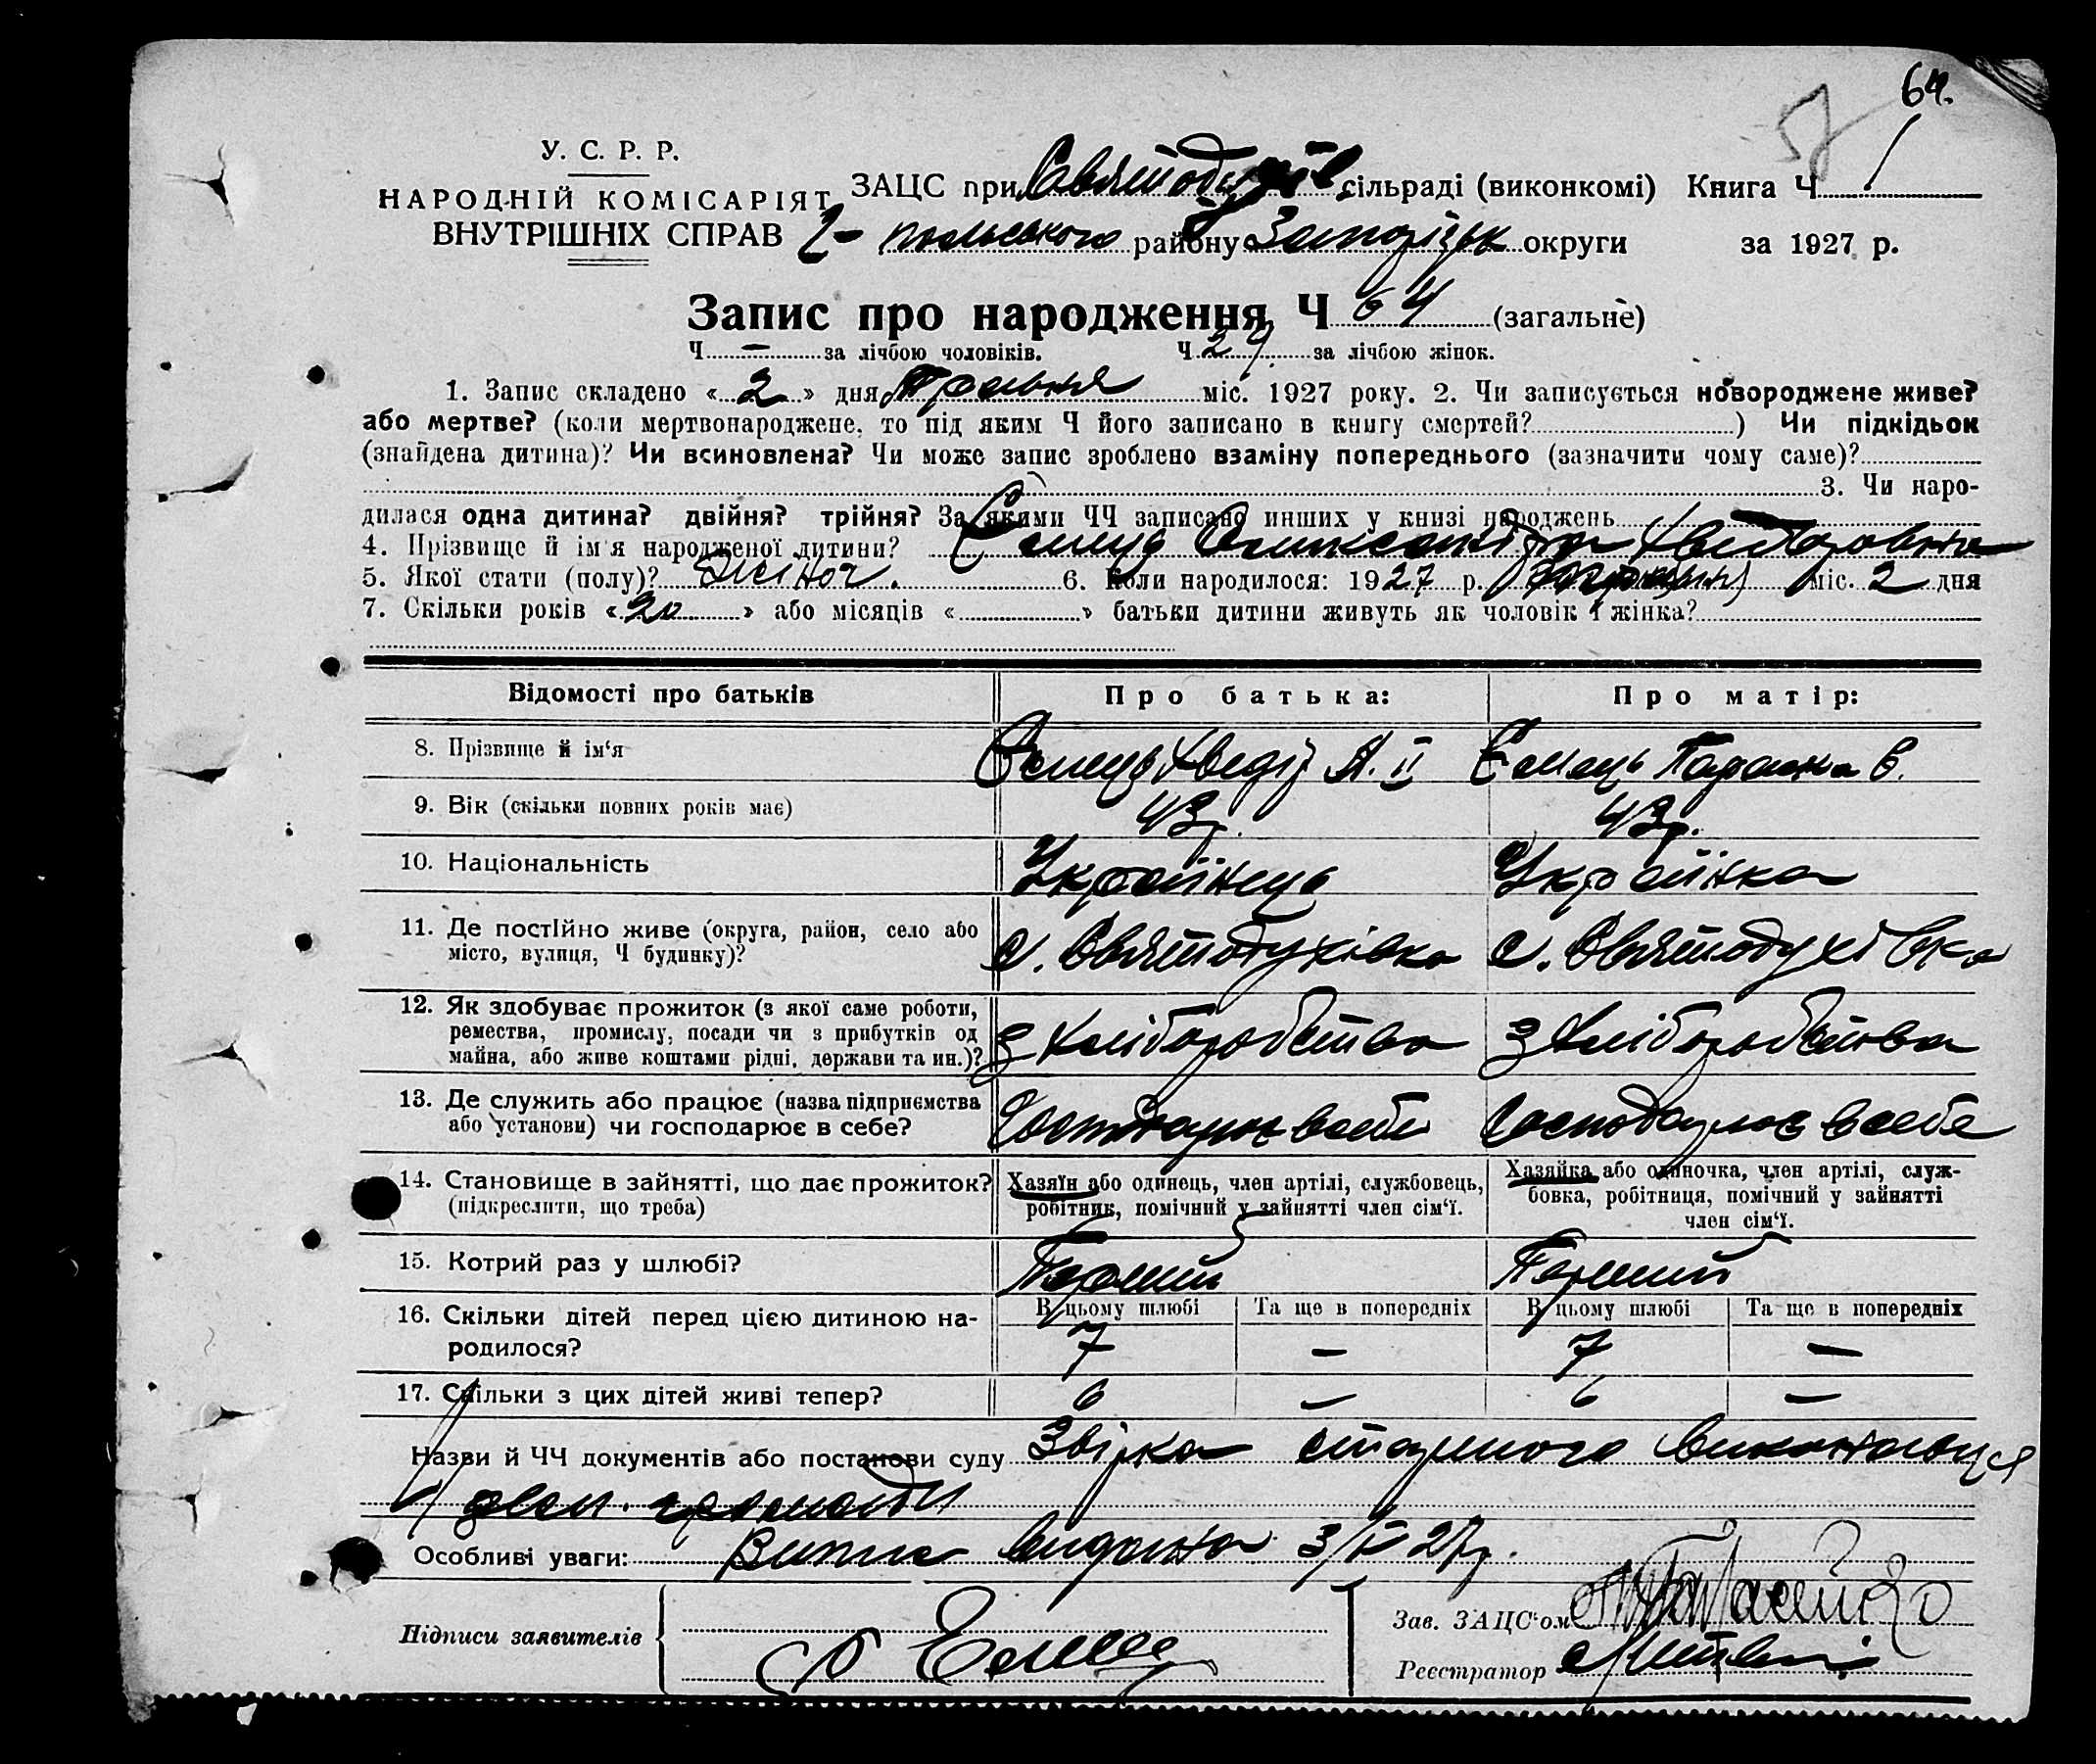 64.
57
У. С. Р. Р.
НАРОДНІЙ КОМІСАРІЯТ
ВНУТРІШНІХ СПРАВ
ЗАЦС при Святодухів. сільраді (виконкомі) Книга Ч 1
польського району Запорізьк округи за 1927 р.
Запис про народження Ч 64 (загальне)
Ч — за лічбою чоловіків. Ч 29 за лічбою жінок.
1. Запис складено «2» дня Травня міс. 1927 року. 2. Чи записується новороджене живе?
або мертве? (коли мертвонароджене, то під яким Ч його записано в книгу смертей? ) Чи підкідьок
(знайдена дитина)? Чи всиновлена? Чи може запис зроблено взаміну попереднього (зазначити чому саме)?
3. Чи наро-
дилася одна дитина? двійня? трійня? За якими ЧЧ записано инших у книзі народжень
4. Прізвище й ім'я народженої дитини? Ємець Олександра Хведоровна
5. Якої стати (полу)? Жіноч. 6. Коли народилося: 1927 р. міс. 2 дня
7. Скільки років «20» або місяців « » батьки дитини живуть як чоловік і жінка?
Відомості про батьків Про батька: Про матір:
8. Прізвище й ім'я Ємець Хведір А. II Ємець Параска В.
9. Вік (скільки повних років має) 43 р. 43 р.
10. Національність Українець Українка
11. Де постІйно живе (округа, район, село або
місто, вулиця, Ч будинку)? с. Святодухівка с. Святодухівка
12. Як здобуває прожиток (з якої саме роботи,
ремества, промислу, посади чи з прибутків од
майна, або живе коштами рідні, держави та ин.)? З хліборобства З хліборобства
13. Де служить або працює (назва підприємства
або установи) чи господарює в себе? Господарює в себе Господарює в себе
14. Становище в зайнятті, що дає прожиток?
(підкреслити, що треба)
Хазяїн або одинець, член артілі, службовець,
робітник, помічний у зайнятті член сім'ї.
Хазяйка або одиночка, член артілі, служ-
бовка, робітниця, помічний у зайнятті
член сім'ї.
15. Котрий раз у шлюбі? Перший Перший
16. Скільки дітей перед цією дитиною на-
родилося?
В цьому шлюбі Та ще в попередніх В цьому шлюбі Та ще в попередніх
7 — 7 —
17. Скільки з цих дітей живі тепер? 6 — 6 —
Назви й ЧЧ документів або постанови суду Звірка старшого виконавця
зем. громади
Особливі уваги: Випис видана 3/V 27 р.
Підписи заявителів Ємець
Зав. ЗАЦС'ом
Реєстратор